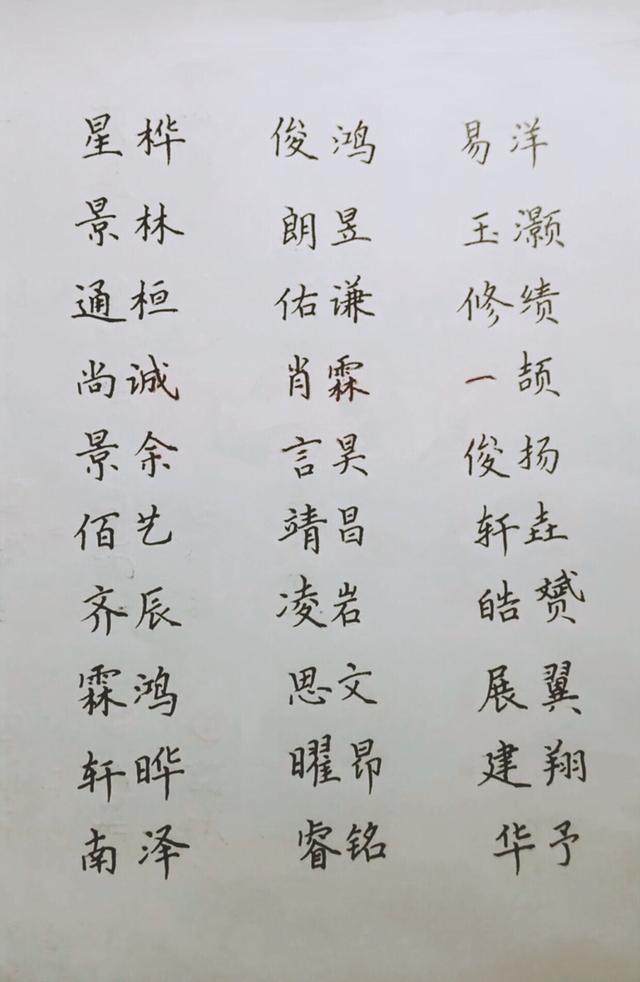 星桦 俊鸿 易洋
景林 朗昱 玉灏
通桓 佑谦 修绩
尚诚 肖霖 一颉
景余 言昊 俊扬
佰艺 靖昌 轩垚
齐辰 凌岩 皓赟
霖鸿 思文 展翼
轩晔 曜昂 建翔
南泽 睿铭 华予